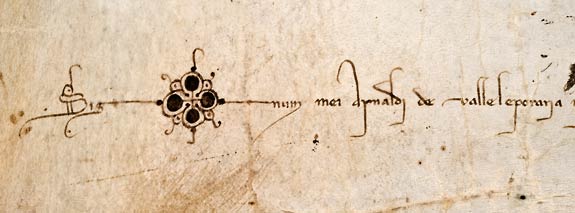 Sig num mei Arnaldi de valleleporaria